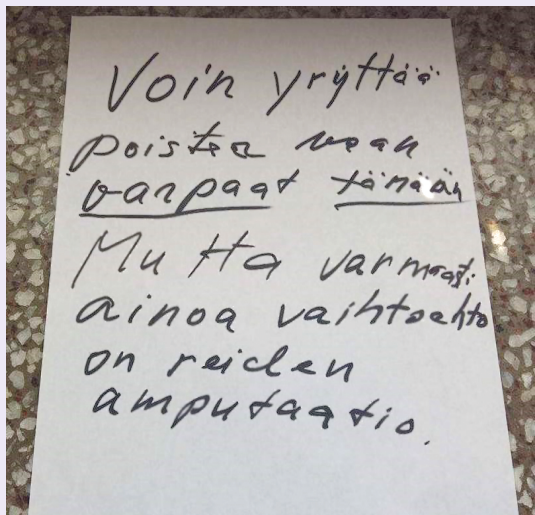 Voin yryttää
poistaa vaan
varpaat tänään
Mutta varmasti
ainoa vaihtoehto
on reiden
amputaatio.